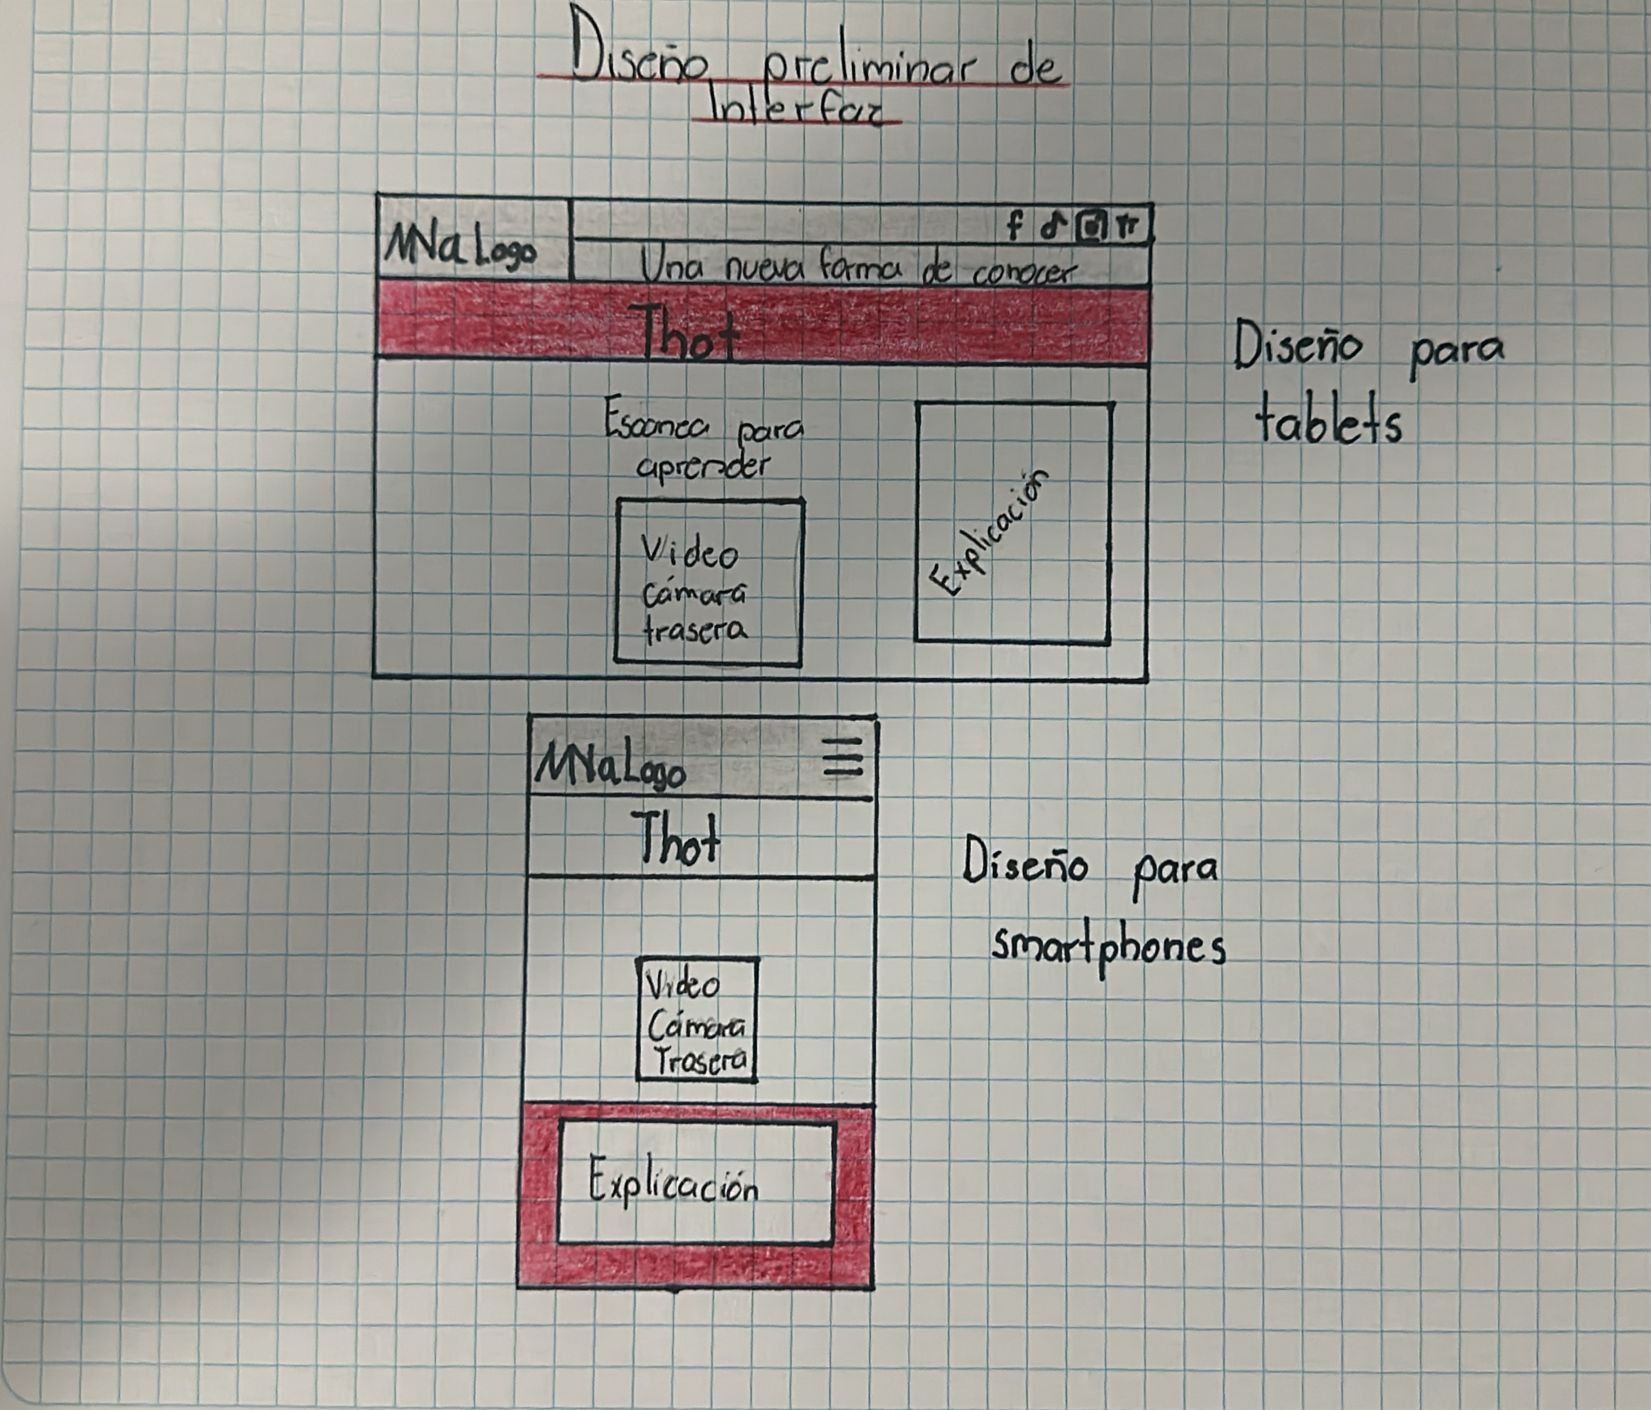 Diseño preliminar de
Interfaz
MNa Logo
f
Una nueva forma de conocer
Thot
Escanea para
aprender
Video
cámara
trasera
Explicación
Diseño para
tablets
MNa Logo
Thot
Video
Cámara
Trasera
Explicación
Diseño para
smartphones